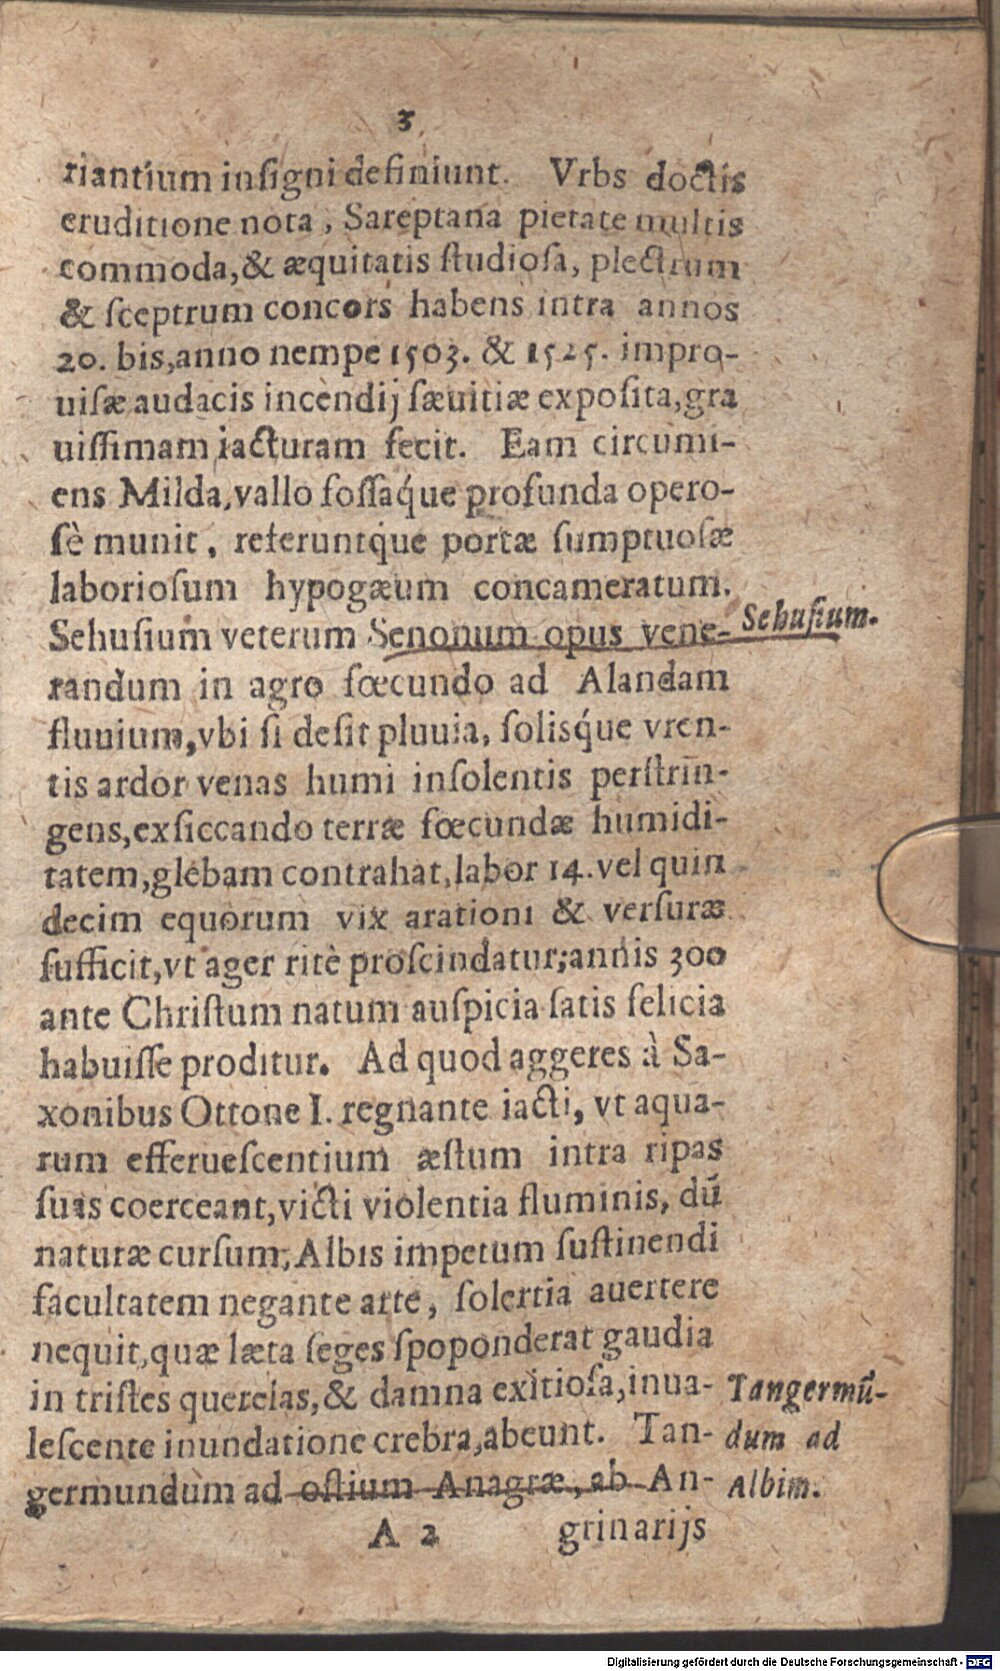 3
riantium inſigni definiunt. Vrbs doctis
eruditione nota, Sareptana pietate multis
commoda, & æquitatis ſtudioſa, plectrum
& ſceptrum concors habens intra annos
20. bis, anno nempe 1503. & 1525. impro-
uiſæ audacis incendij ſæuitiæ expoſita, gra
uiſſimam iacturam fecit. Eam circumi-
ens Milda, vallo foſſaq́ue profunda opero-
ſè munit, referuntq́ue portæ ſumptuoſæ
laborioſum hypogæum concameratum.
Sehuſium veterum Senonum opus vene-
Sehuſium.
randum in agro fœcundo ad Alandam
fluuium, vbi ſi deſit pluuia, ſolisq́ue vren-
tis ardor venas humi inſolentis perſtrin-
gens, exſiccando terræ fœcundæ humidi-
tatem, glebam contrahat, labor 14. vel quin
decim equorum vix arationi & verſuræ
ſufficit, vt ager ritè proſcindatur; annis 300
ante Chriſtum natum auſpicia ſatis felicia
habuiſſe proditur. Ad quod aggeres à Sa-
xonibus Ottone I. regnante iacti, vt aqua-
rum efferueſcentium æſtum intra ripas
ſuas coerceant, victi violentia fluminis, dū
naturæ curſum, Albis impetum ſuſtinendi
facultatem negante arte, ſolertia auertere
nequit, quæ læta ſeges ſpoponderat gaudia
in triſtes querelas, & damna exitioſa, inua-
leſcente inundatione crebra, abeunt. Tan-
germundum ad oſtium Anagræ, ab An-
Tangermū-
dum ad
Albim.
A 2 grinarijs
Digitalisierung gefördert durch die Deutsche Forschungsgemeinschaft - DFG